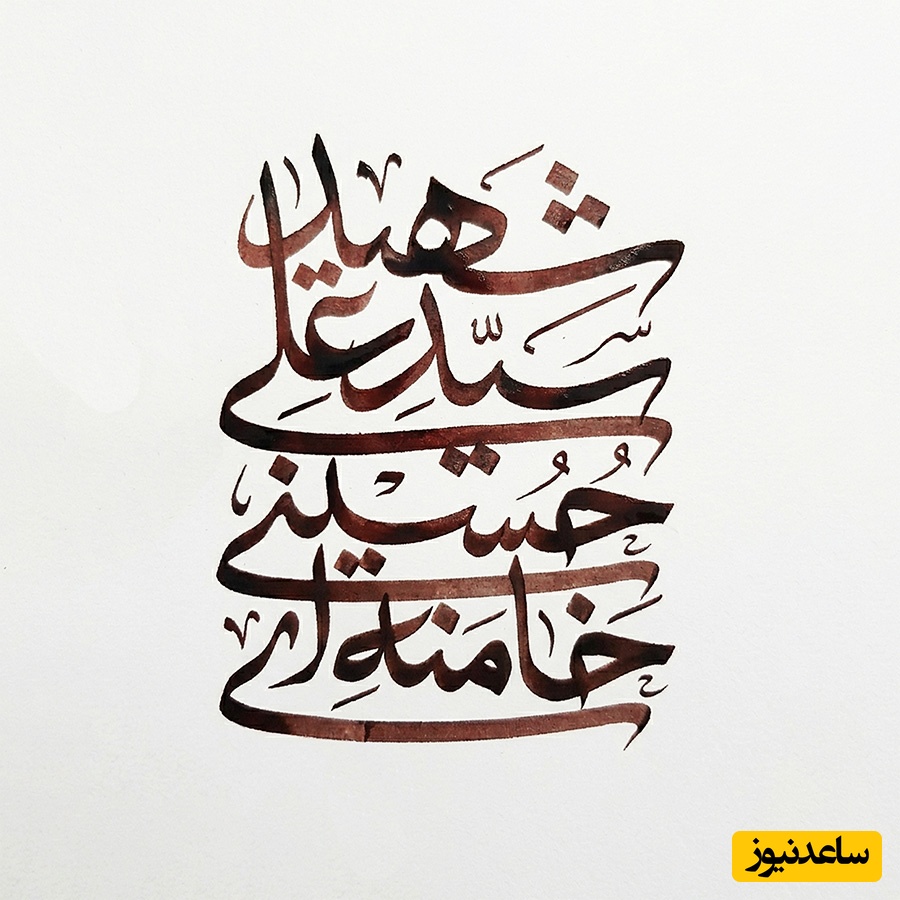 شهید
سیّدِ علی
حُسینی
خامَنه‌ای
ساعدنیوز